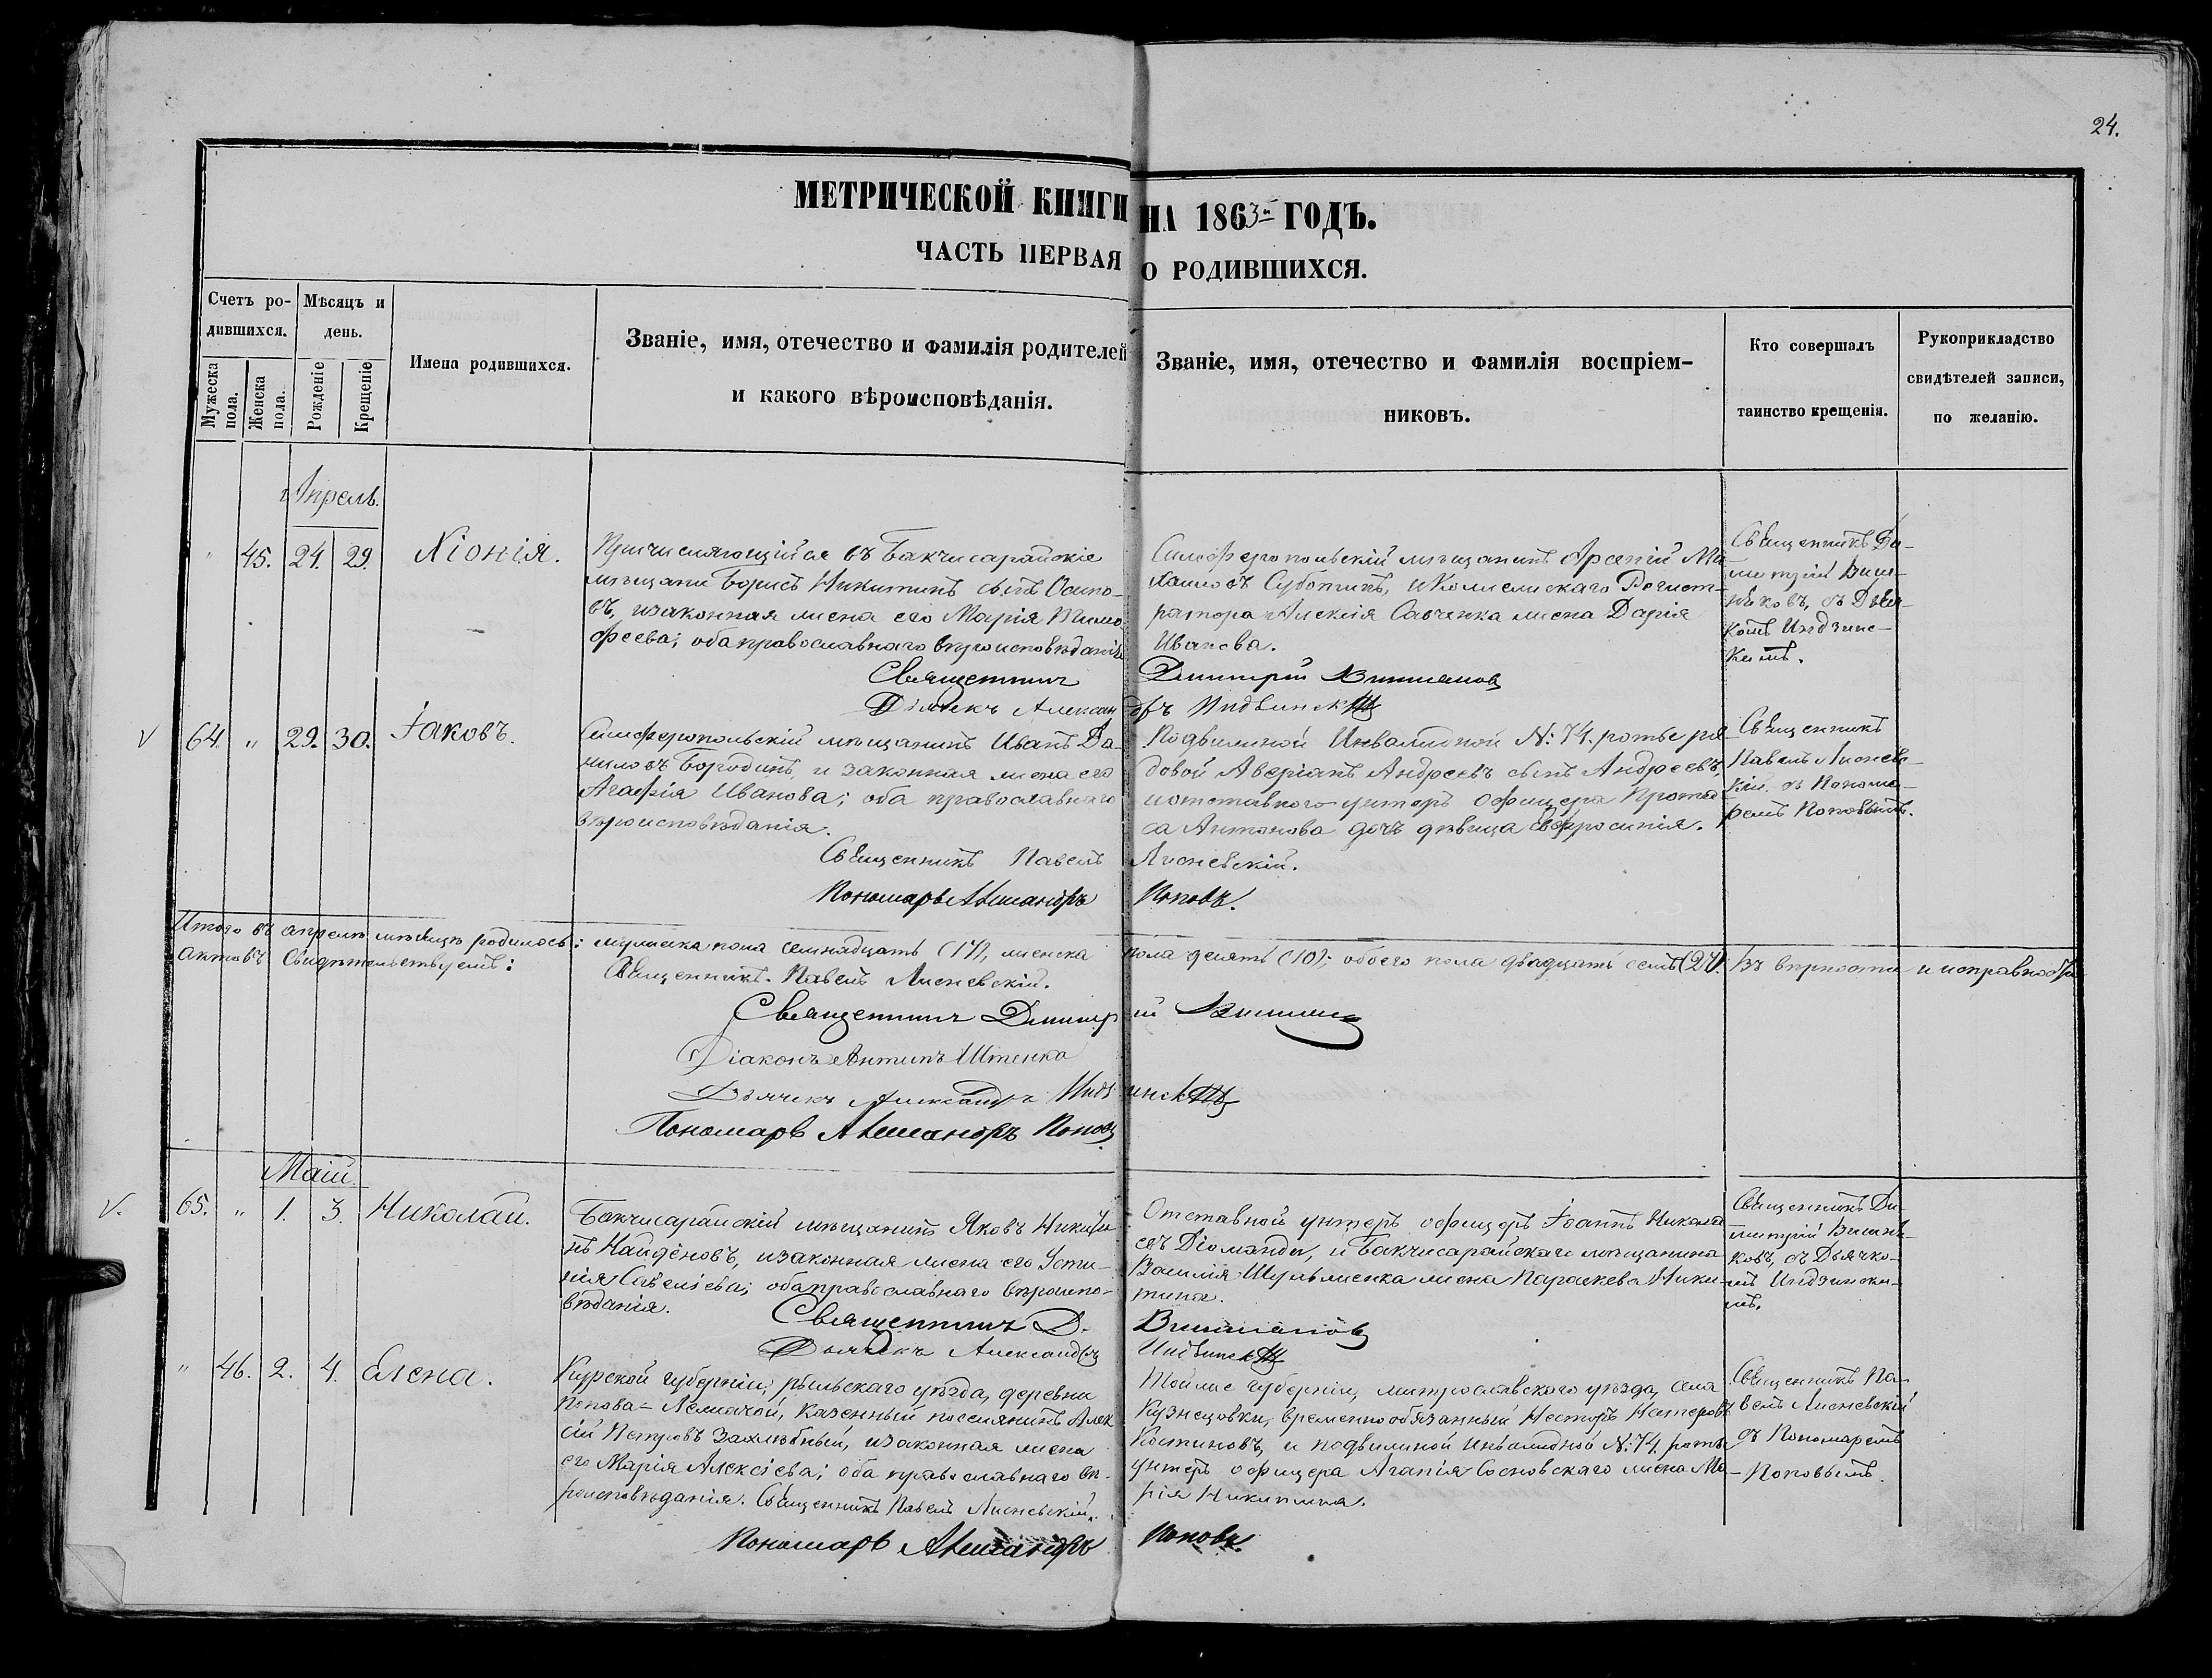 24.
МЕТРИЧЕСКОЙ КНИГИ НА 1863й ГОДЪ.
ЧАСТЬ ПЕРВАЯ О РОДИВШИХСЯ.
Счетъ ро-
дившихся.
Мужеска
пола.
Женска
пола.
Мѣсяцъ и
день.
Рожденіе
Крещеніе
Имена родившихся.
Званіе, имя, отечество и фамилія родителей
и какого вѣроисповѣданія.
Званіе, имя, отечество и фамилія воспріем-
никовъ.
Кто совершалъ
таинство крещенія.
Рукоприкладство
свидѣтелей записи,
по желанію.
Апрель.
" 45. 24. 29. Хіонія.
Причисляющійся въ Бакчисарайскіе
мѣщани Борисъ Никитинъ сынъ Осипо-
въ, изаконная жена его Марія Тимо-
феева; оба православнаго вѣроисповѣданія
Симферопольскій мѣщанинъ Арсеній Ми-
хаиловъ Суботинъ, и Колежскаго Регист-
ратора Алексія Савченка жена Дарія
Иванова.
Священникъ Ди-
митрій Виш-
няковъ, съ Дьяч-
комъ Индзинс-
кимъ.
Священникъ Димитрій
Дьячекъ Александръ
V 64. " 29. 30. Іаковъ.
Симферопольскій мѣщанинъ Иванъ Да-
ниловъ Бородинъ, и законная жена его
Агафія Иванова; оба православнаго
вѣроисповѣданія.
Подвижной Инвалидной №: 74. роты ря-
довой Аверіанъ Андреевъ сынъ Андреевъ,
иотставного унтеръ офицера
са Антонова дочь дѣвица Евфросинія.
Священникъ
Павелъ Лисневс-
кій. съ Понома-
ремъ Поповымъ.
Священникъ Павелъ Лисневскій.
Пономарь Александръ Поповъ.
Итого въ апрелѣ мѣсяцѣ родилось: мужеска пола семнадцать (17), женска пола десять (10); обоего пола двадцать семь (27). Въ вѣрности и исправности
актовъ свидѣтельствуемъ:
Священникъ Павелъ Лисневскій.
Священникъ Димитрій
Діаконъ Антипъ
Дьячекъ Александръ
Пономарь Александръ Поповъ
Маій.
V. 65. " 1. 3. Николай.
Бакчисарайскій мѣщанинъ Яковъ Никити-
нъ Найденовъ, изаконная жена его Усти-
нія Савеліева; оба православнаго вѣроиспо-
вѣданія.
Отставной унтеръ офицеръ Іоаннъ Никола-
евъ Діоманди, и Бакчисарайскаго мѣщанина
Василія жена Параскева Ники-
тина.
Священникъ Ди-
митрій Вишня-
ковъ, съ Дьячко-
мъ Индзински-
мъ.
Священникъ Д.
Дьячекъ Александръ
" 46. 2. 4. Елена.
Курской губерніи, рыльскаго уѣзда, деревни
Попова-Лежачой, казенный поселянинъ Алек-
сій Петровъ Захлѣбный, изаконная жена
его Марія Алексіева; оба православнаго вѣ-
роисповѣданія. Священникъ Павелъ Лисневскій.
Тойже губерніи, уѣзда, села
Кузнецовки, временнообязанный Несторъ Нестеровъ
Костиновъ, и подвижной инвалидной №: 74. роты
унтеръ офицера Агапія Сосновскаго жена Ма-
рія Никитина.
Священникъ Па-
велъ Лисневскій
съ Пономаремъ
Поповымъ.
Пономарь Александръ Поповъ.